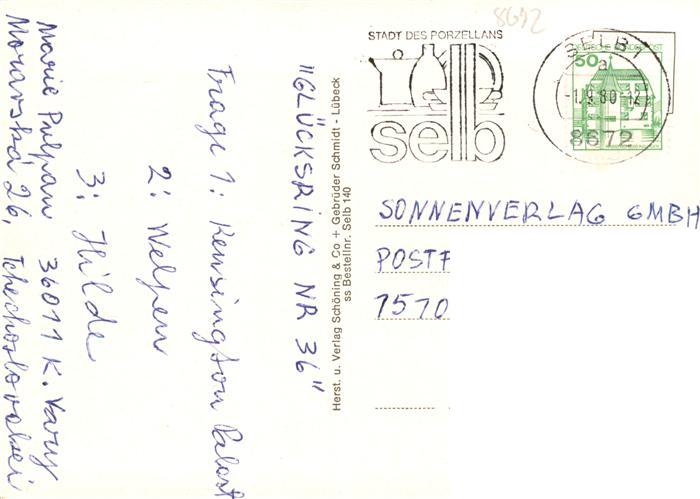 8692
STADT DES PORZELLANS
selb
SELB 1
DEUTSCHE BUNDESPOST
50
a
-1.9.80-12
8672
"GLÜCKSRING NR 36"
Frage 1: Kensington Palast
2: Welpen
3: Hilde
Marie Pulpan 36011 K. Vary
Moravská 26, Tchechoslovakei
Herst. u. Verlag Schöning & Co + Gebrüder Schmidt - Lübeck
ss Bestellnr. Selb 140
SONNENVERLAG GMBH
POSTF
7570